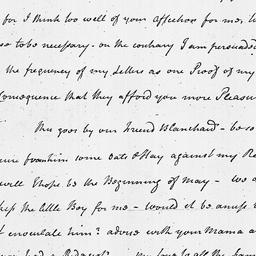 for I think too well of your affection for me, to
so to be necessary. on the contrary I am persuaded
the frequency of my Letters as one Proof of my
Consequence that they afford you more Pleasure
This goes by our Friend Blanchard - be so
some Oats & Hay against my Re
will I hope be the Beginning of May - we a
kiss the little Boy for me - would it be amiss
t enoculate him? advise with your Mama a
my Love to all the fam